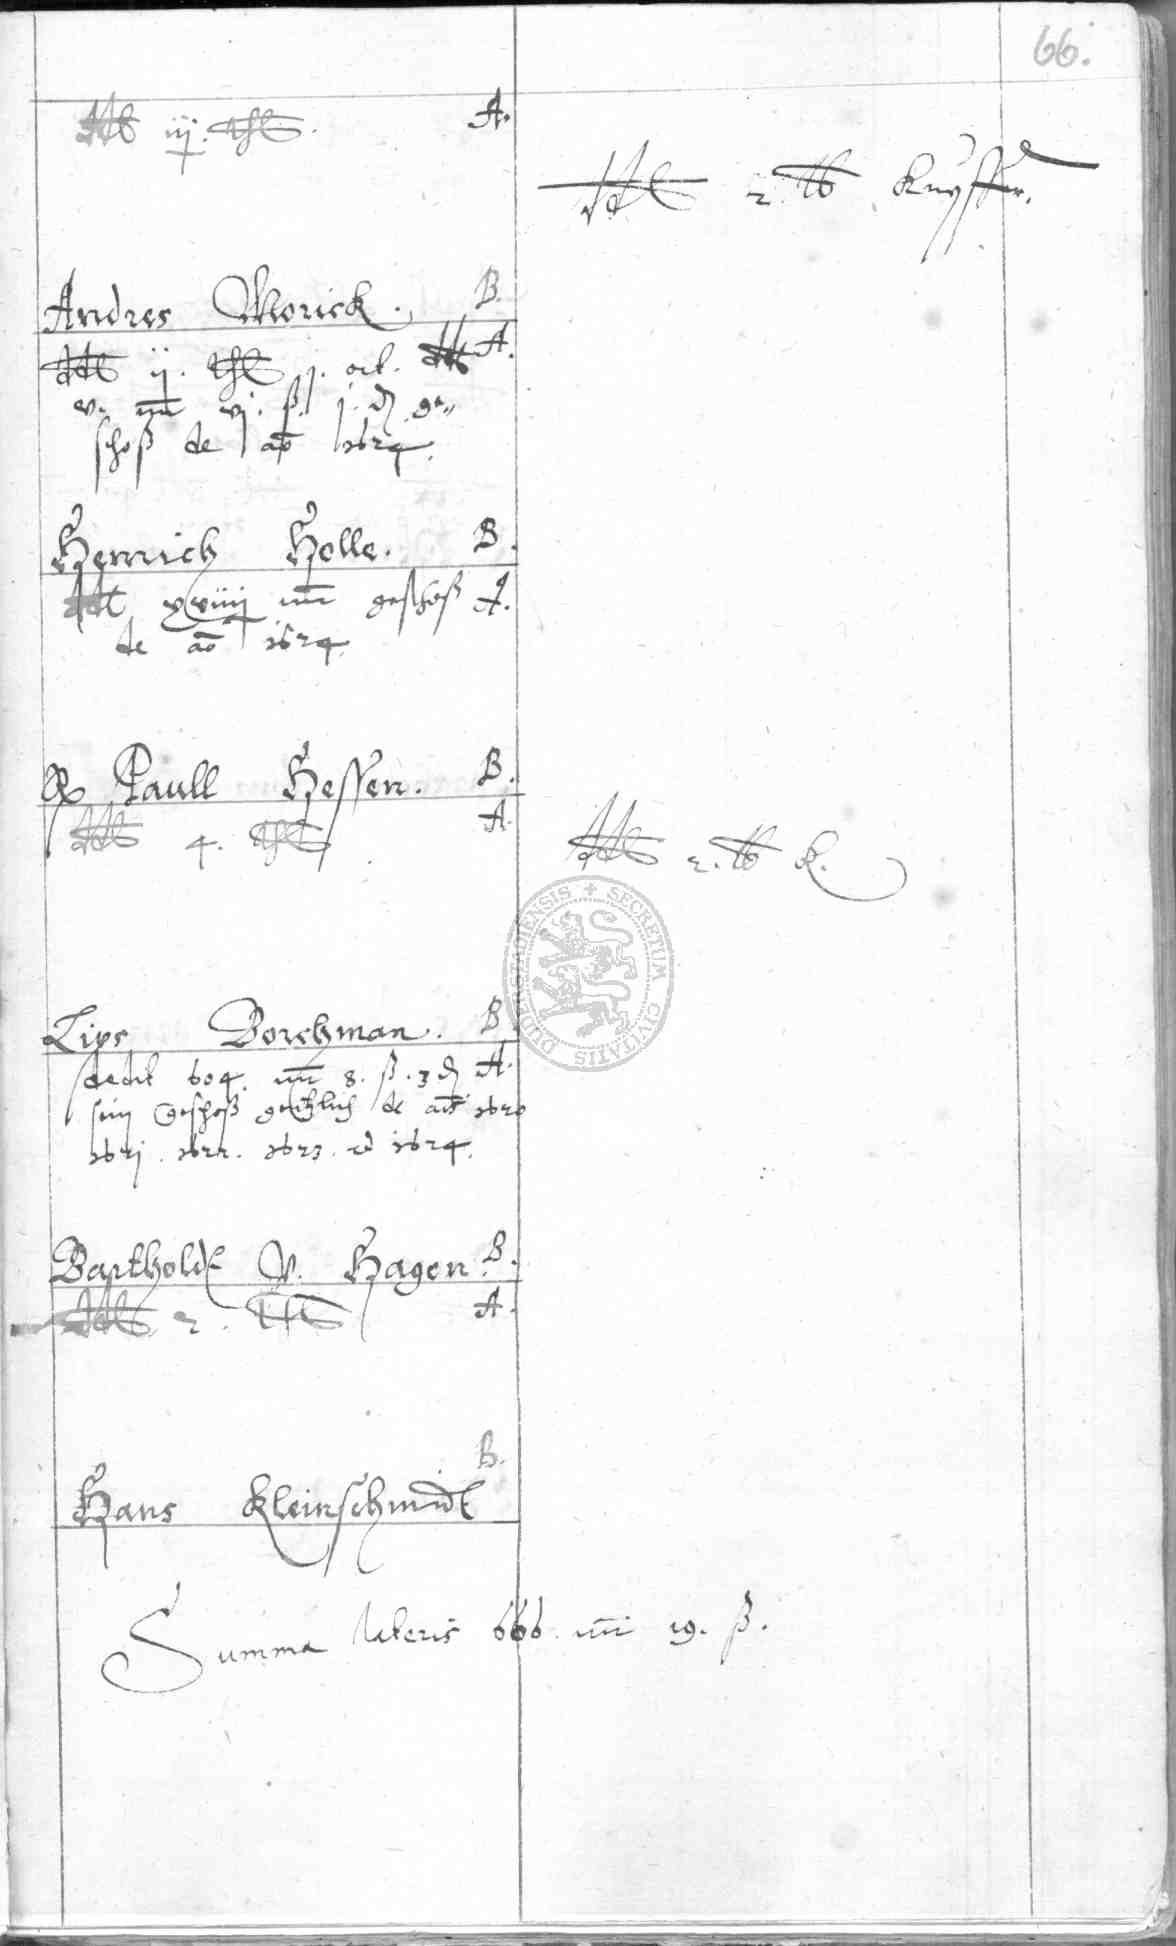 66.
iij. thl. A.
2. lb Kupffer.
Andres Morick. B.
ij. thl j. ort. A.
v. mr vj. ß. j. d ge„
schoß de ao 1624.
Henrich Holle. B.
xviiij mr geschoß A.
de ao 1624
Paull Hessen. B.
4. thl A.
2. lb K.
Lips Borchman. B
dedit 604. mr 8. ß. 3 d A.
sein Geschoß gentzlich de ao 1620
1621. 1622. 1623. et 1624.
Bartholdt V. Hagen B.
2. A.
B.
Hans Kleinschmidt
Summa lateris 666. mr 19. ß.
SECRETUM CIVITATIS DUDERSTADIENSIS